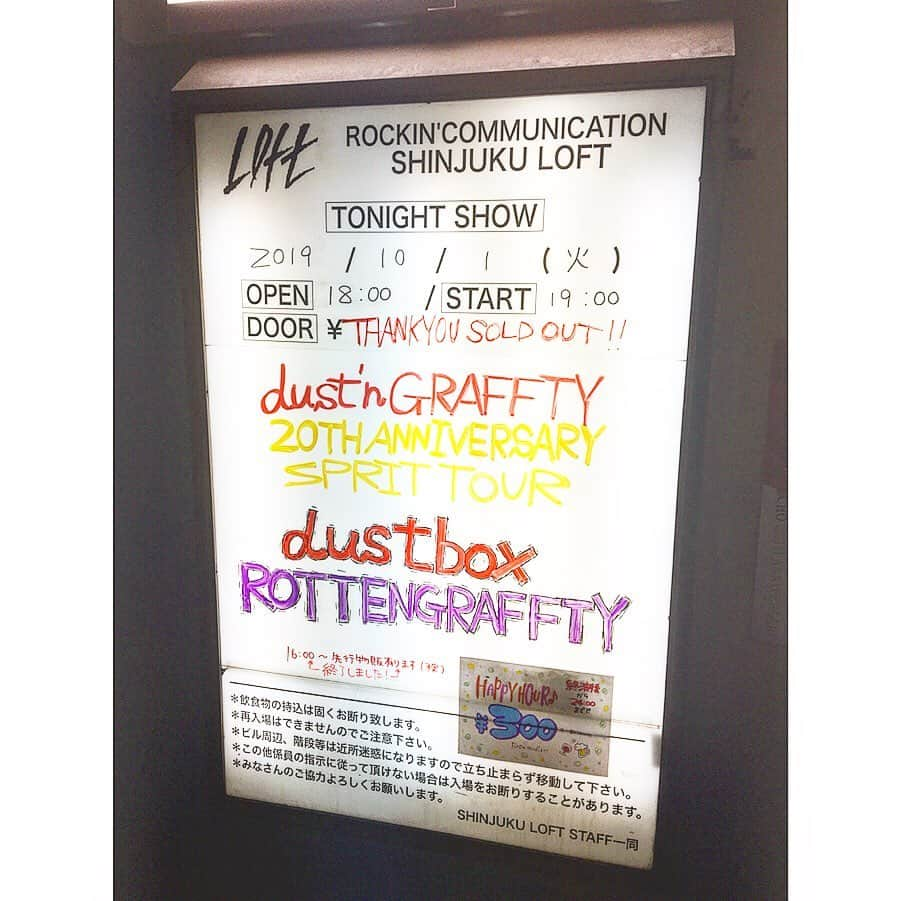 Loft
ROCKIN'COMMUNICATION
SHINJUKU LOFT
TONIGHT SHOW
2019 / 10 / 1 (火)
OPEN 18:00 / START 19:00
DOOR ¥ THANKYOU SOLD OUT!!
dust'n GRAFFTY
20TH ANNIVERSARY
SPRIT TOUR
dustbox
ROTTENGRAFFTY
16:00～先行物販有ります
終了しました!
HAPPY HOUR♪
終演後
から
¥300
*飲食物の持込は固くお断り致します。
*再入場はできませんのでご注意下さい。
*ビル周辺、階段等は近所迷惑になりますので立ち止まらず移動して下さい。
*この他係員の指示に従って頂けない場合は入場をお断りすることがあります。
*みなさんのご協力よろしくお願いします。
SHINJUKU LOFT STAFF一同